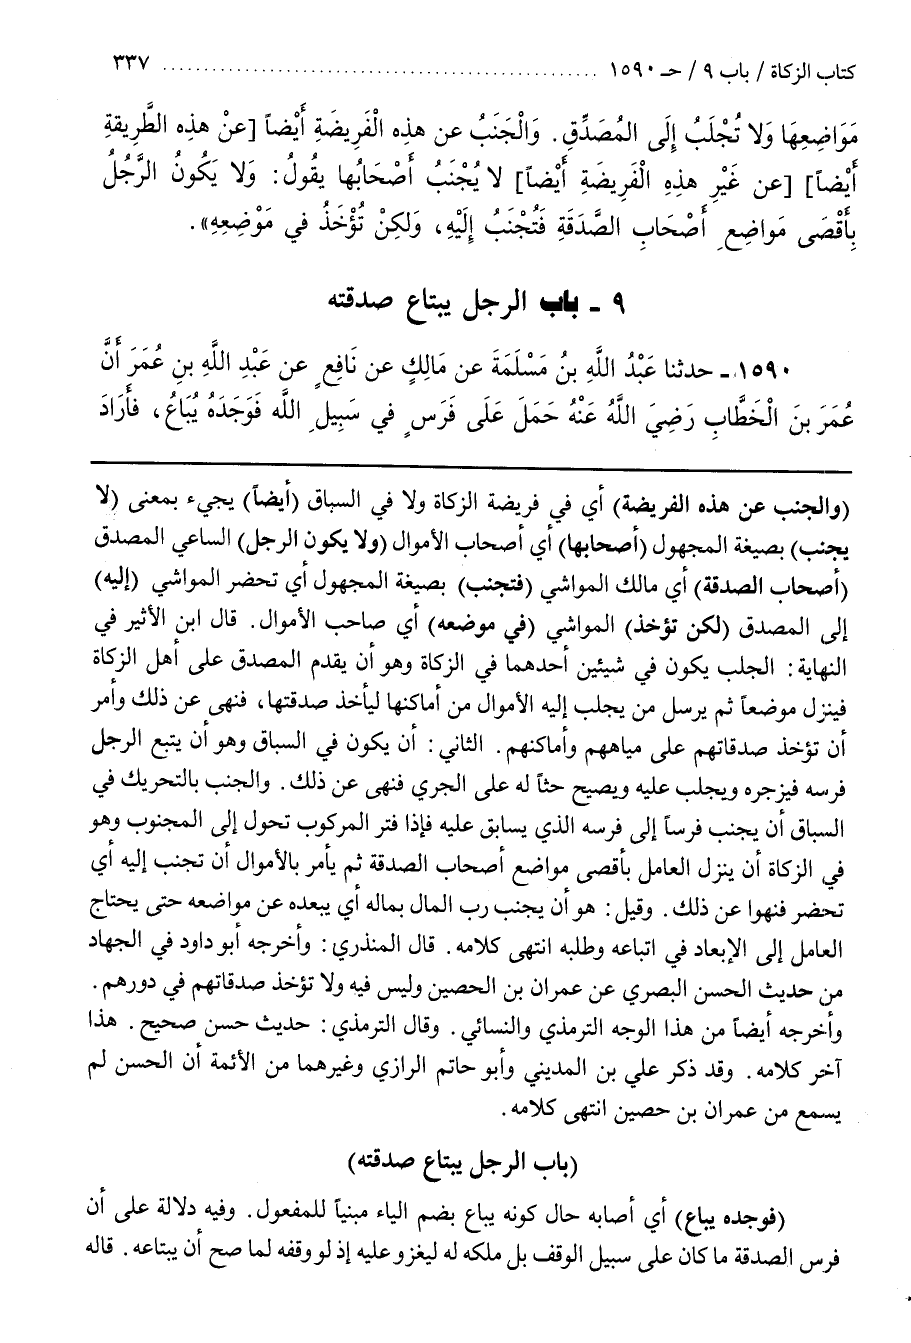 كتاب الزكاة / باب ٩ / حـ ١٥٩٠ ........................................................ ٣٣٧
مَوَاضِعِهَا وَلا تُجْلَبُ إِلَى المُصَدِّقِ. وَالْجَنَبُ عن هذِه الْفَرِيضَةِ أَيْضاً [عنْ هذِه الطَّرِيقةِ
أَيْضاً] [عن غَيْرِ هذِهِ الْفَرِيضَةِ أَيْضاً] لا يُجْنَبُ أَصْحَابُها يقُولُ: وَلا يَكُونُ الرَّجُلُ
بِأَقْصَى مَواضِعِ أَصْحَابِ الصَّدَقَةِ فَتُجْنَبُ إِلَيْهِ، وَلكِنْ تُؤْخَذُ في مَوْضِعِهِ».
٩ ـ باب الرجل يبتاع صدقته
١٥٩٠ ـ حدثنا عَبْدُ اللَّهِ بنُ مَسْلَمَةَ عن مَالِكٍ عن نَافِعٍ عن عَبْدِ اللَّهِ بنِ عُمَرَ أَنَّ
عُمَرَ بنَ الْخَطَّابِ رَضِيَ اللَّهُ عَنْهُ حَمَلَ عَلَى فَرَسٍ في سَبِيلِ اللَّه فَوَجَدَهُ يُبَاعُ، فأَرَادَ
(والجنب عن هذه الفريضة) أي في فريضة الزكاة ولا في السباق (أيضاً) يجيء بمعنى (لا
يجنب) بصيغة المجهول (أصحابها) أي أصحاب الأموال (ولا يكون الرجل) الساعي المصدق
(أصحاب الصدقة) أي مالك المواشي (فتجنب) بصيغة المجهول أي تحضر المواشي (إليه)
إلى المصدق (لكن تؤخذ) المواشي (في موضعه) أي صاحب الأموال. قال ابن الأثير في
النهاية: الجلب يكون في شيئين أحدهما في الزكاة وهو أن يقدم المصدق على أهل الزكاة
فينزل موضعاً ثم يرسل من يجلب إليه الأموال من أماكنها ليأخذ صدقتها، فنهى عن ذلك وأمر
أن تؤخذ صدقاتهم على مياههم وأماكنهم. الثاني: أن يكون في السباق وهو أن يتبع الرجل
فرسه فيزجره ويجلب عليه ويصيح حثاً له على الجري فنهى عن ذلك. والجنب بالتحريك في
السباق أن يجنب فرساً إلى فرسه الذي يسابق عليه فإذا فتر المركوب تحول إلى المجنوب وهو
في الزكاة أن ينزل العامل بأقصى مواضع أصحاب الصدقة ثم يأمر بالأموال أن تجنب إليه أي
تحضر فنهوا عن ذلك. وقيل: هو أن يجنب رب المال بماله أي يبعده عن مواضعه حتى يحتاج
العامل إلى الإبعاد في اتباعه وطلبه انتهى كلامه. قال المنذري: وأخرجه أبو داود في الجهاد
من حديث الحسن البصري عن عمران بن الحصين وليس فيه ولا تؤخذ صدقاتهم في دورهم.
وأخرجه أيضاً من هذا الوجه الترمذي والنسائي. وقال الترمذي: حديث حسن صحيح. هذا
آخر كلامه. وقد ذكر علي بن المديني وأبو حاتم الرازي وغيرهما من الأئمة أن الحسن لم
يسمع من عمران بن حصين انتهى كلامه.
(باب الرجل يبتاع صدقته)
(فوجده يباع) أي أصابه حال كونه يباع بضم الياء مبنياً للمفعول. وفيه دلالة على أن
فرس الصدقة ما كان على سبيل الوقف بل ملكه له ليغزو عليه إذ لو وقفه لما صح أن يبتاعه. قاله